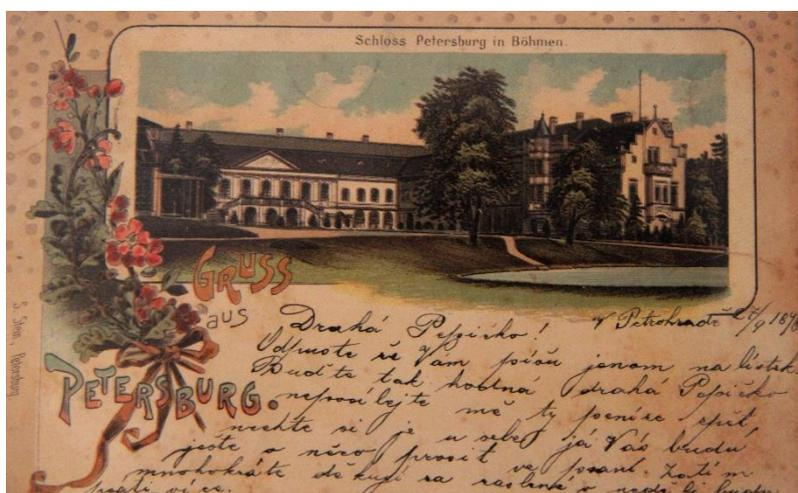 Schloss Petersburg in Böhmen.
GRUSS
aus
PETERSBURG.
S. Stein, Petersburg
V Petrohradě 27/9 189
Drahá Pepičko!
Odpuste že Vám píšu jenom na lístek.
Buďte tak hodná drahá Pepičko
neposílejte mě ty peníze zpět,
nechte si je u sebe, já Vás budu
ještě o něco prosit ve psaní zatím
mnohokráte děkuji za zaslané a